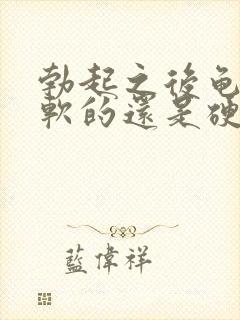 勃起之後龟
軟的還是硬
藍偉祥